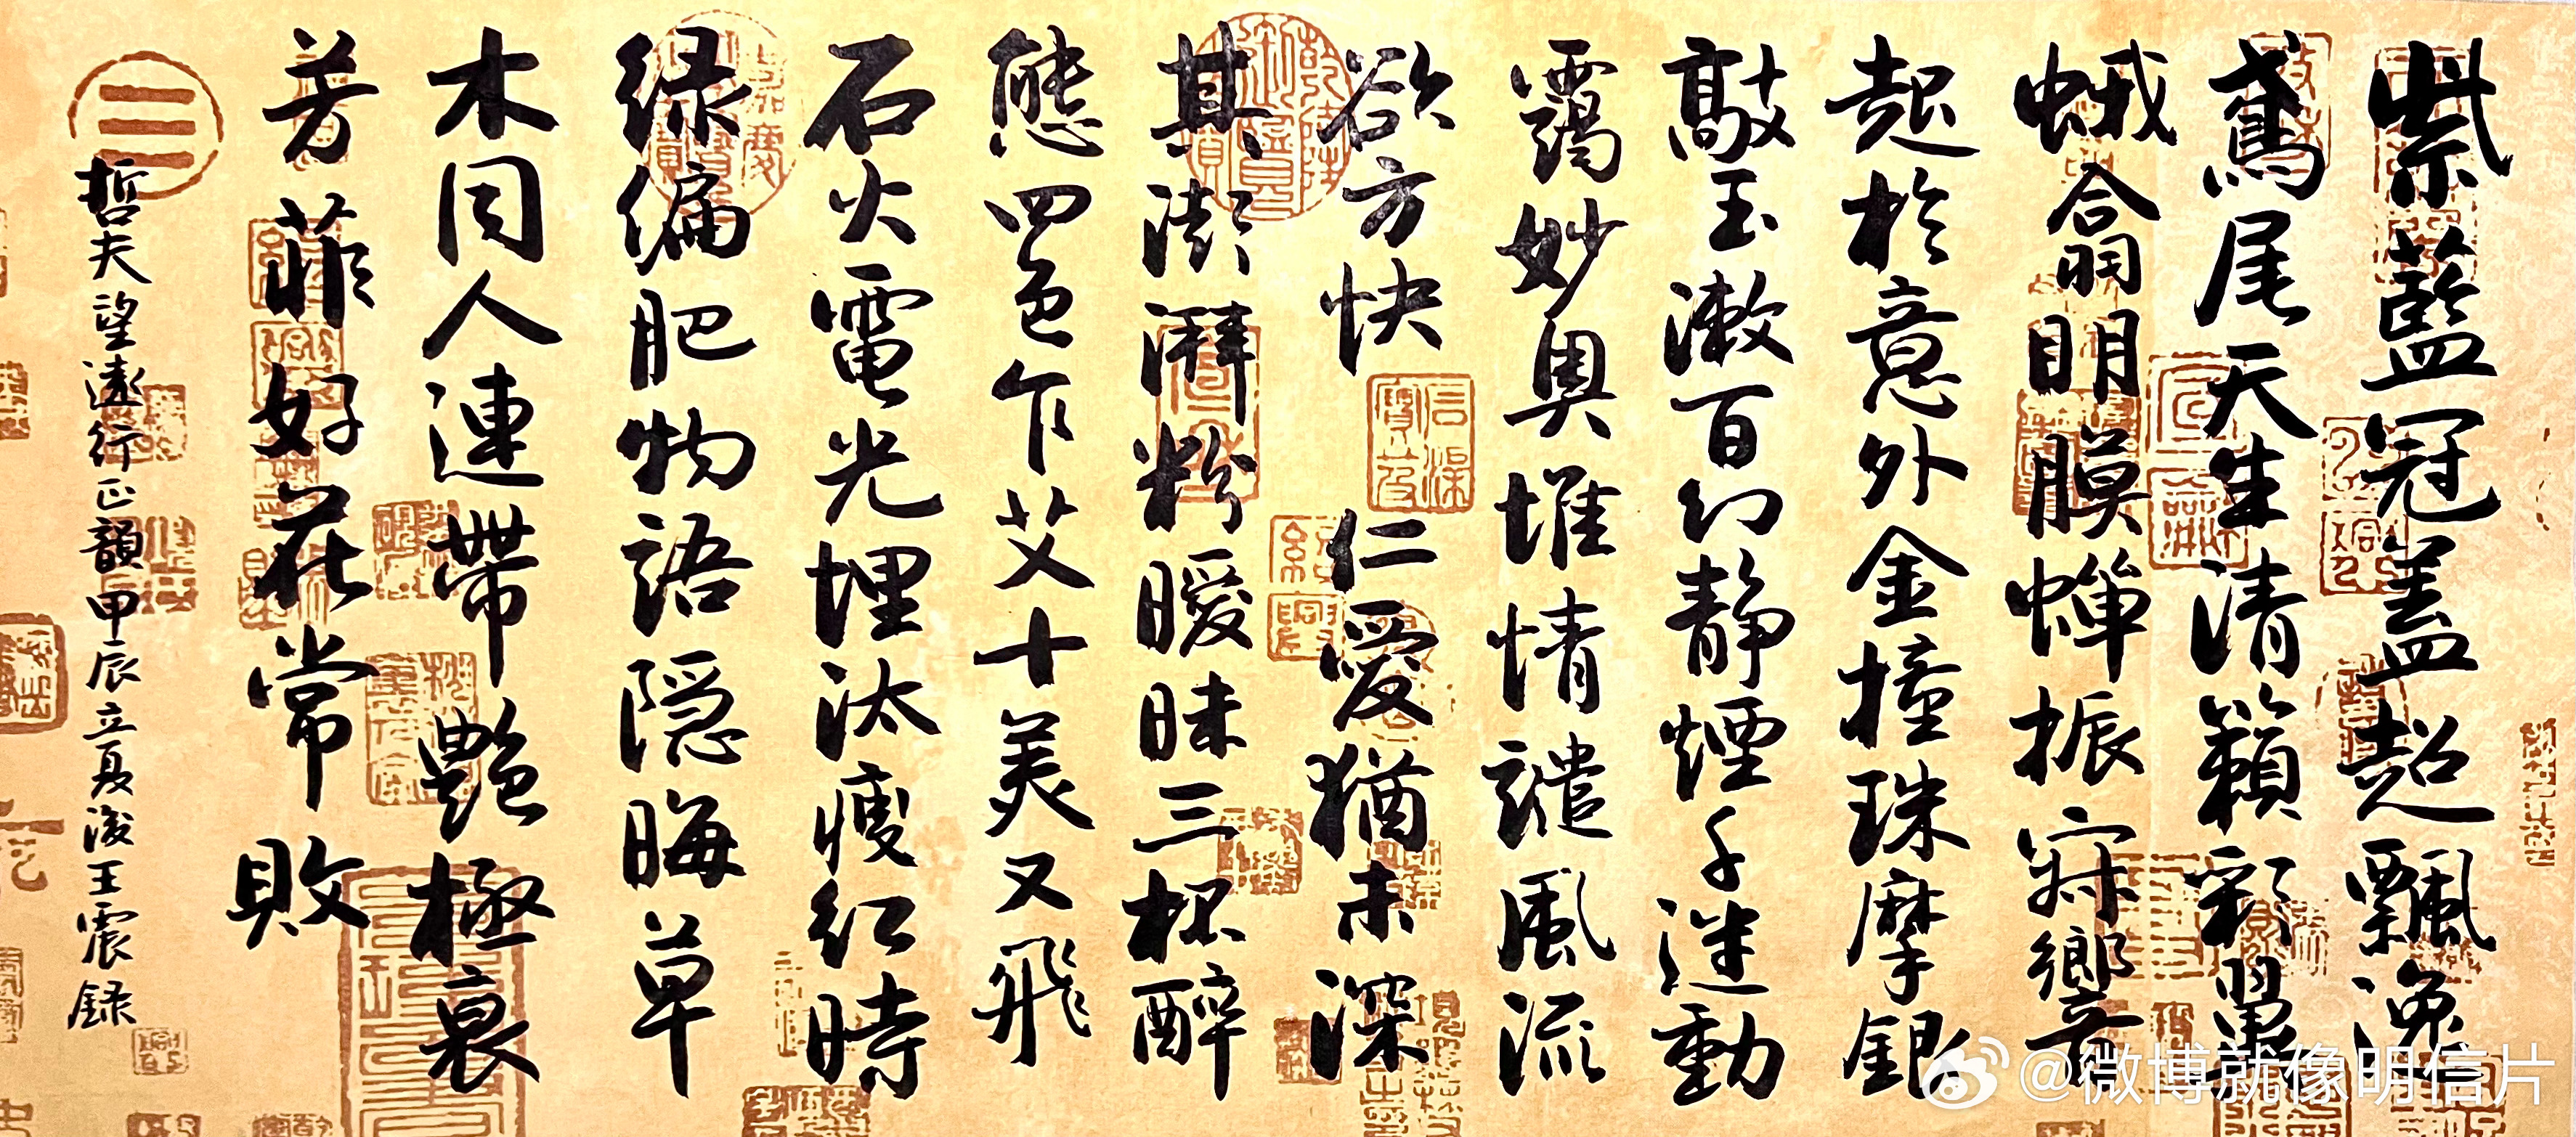 紫藍冠蓋超飄逸
鳶尾天生清籟彩翼
蛾翕明膜蟬振寂響
起於意外金撞珠摩銀
敲玉漱百幻静煙千迷動
靄妙奥堆情譴風流
欲方快 仁愛猶未深
其澎湃粉曖昧三杯醉
態四色乍艾十美又飛
石火電光埋汰瘦红時
绿偏肥物語隐晦草
木同人連帶艷極衰
芳菲好花常敗
哲夫望遠行正韻甲辰立夏後王震録
@微博就像明信片